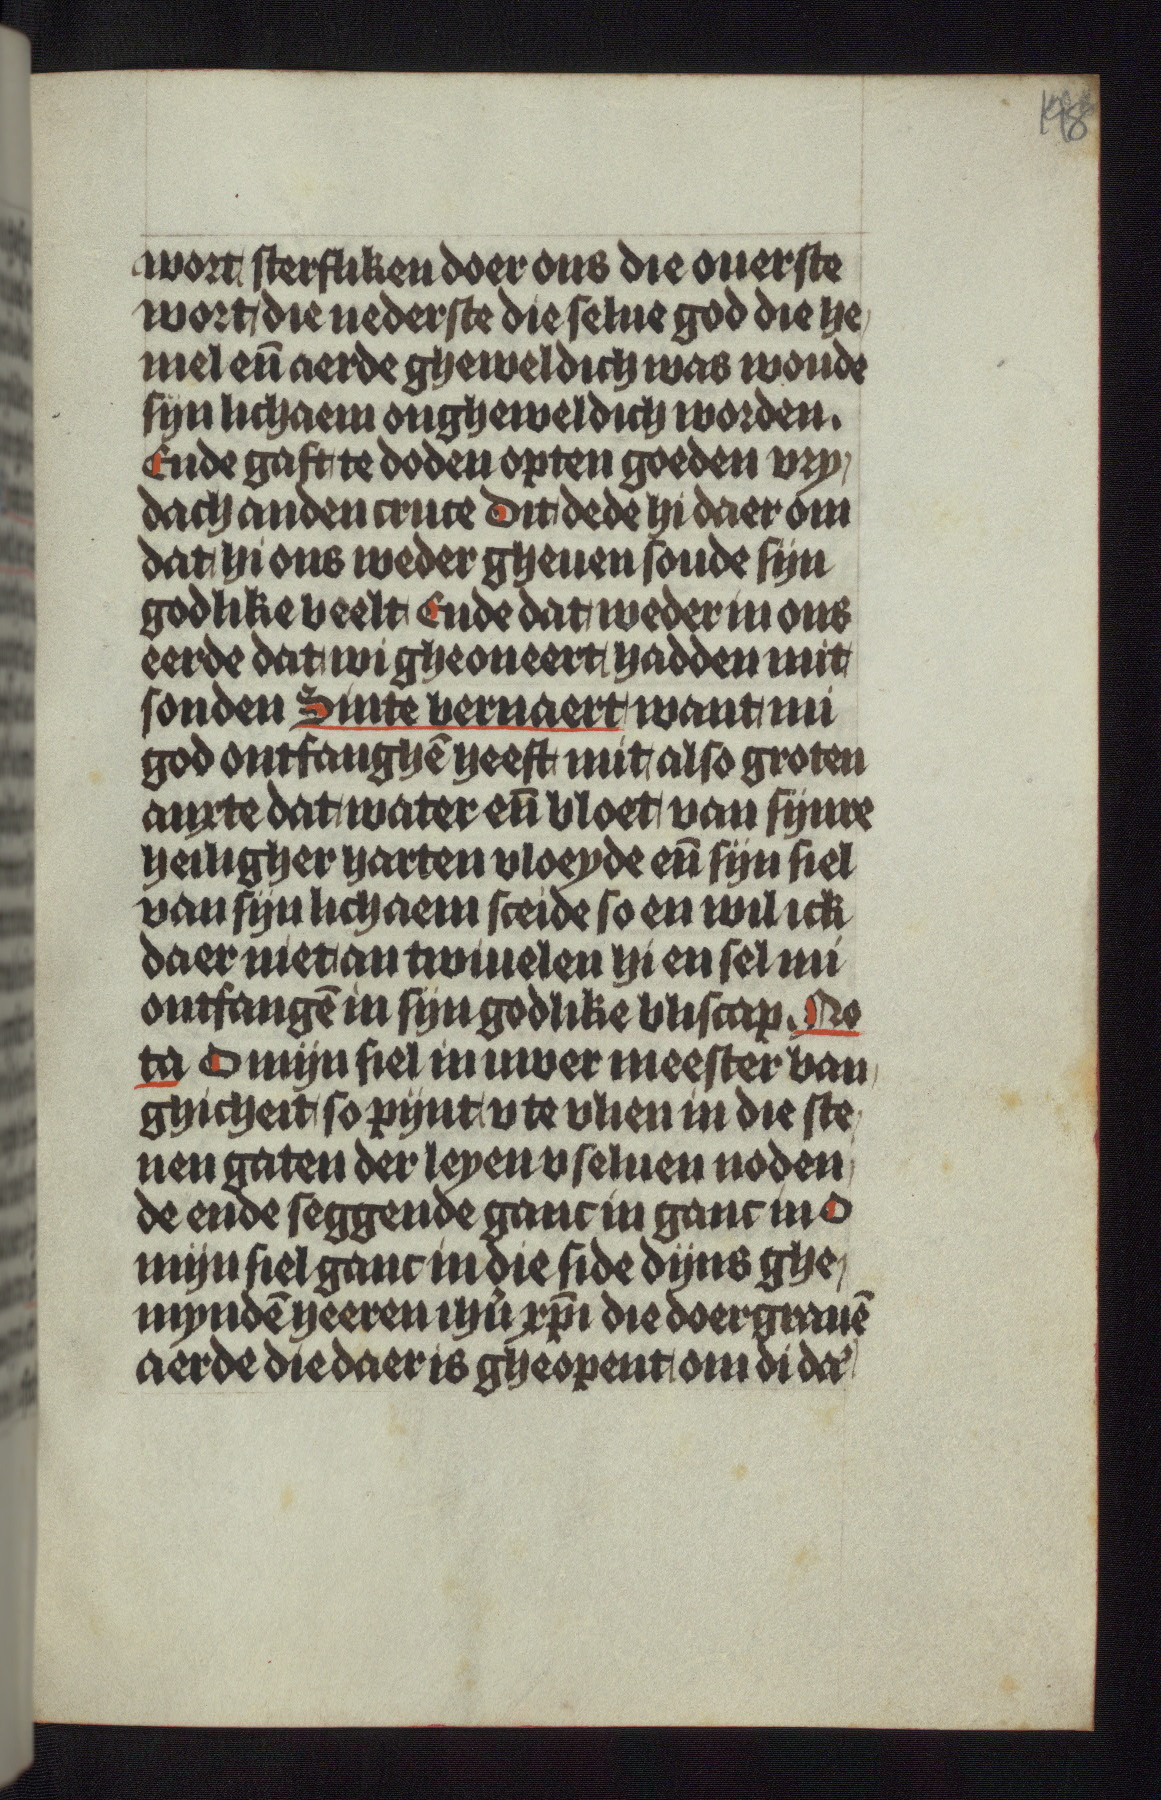 198
wort sterfliken doer ons die ouerste
wort die nederste die selue god die he
mel eñ aerde gheweldich was woude
sijn lichaem ongheweldich worden.
Ende gaft te doden opten goeden vry
dach anden cruce Dit dede hi daer om
dat hi ons weder gheuen soude sijn
godlike beelt Ende dat weder in ons
eerde dat wi gheoneert hadden mit
sonden Sinte bernaert want mi
god ontfanghē heeft mit also groten
anxte dat water eñ bloet van sijnre
heiligher harten vloeyde eñ sijn siel
van sijn lichaem sceide so en wil ick
daer niet an twiuelen hi en sel mi
ontfangē in sijn godlike bliscap. No
ta O mijn siel in uwer meester ban
ghicheit so pijnt v te vlien in die ste
nen gaten der leyen v seluen noden
de ende seggende ganc in ganc in O
mijn siel ganc in die side dijns ghe
myndē heeren ihū xpī die doergrauē
aerde die daer is gheopent om di daͤ